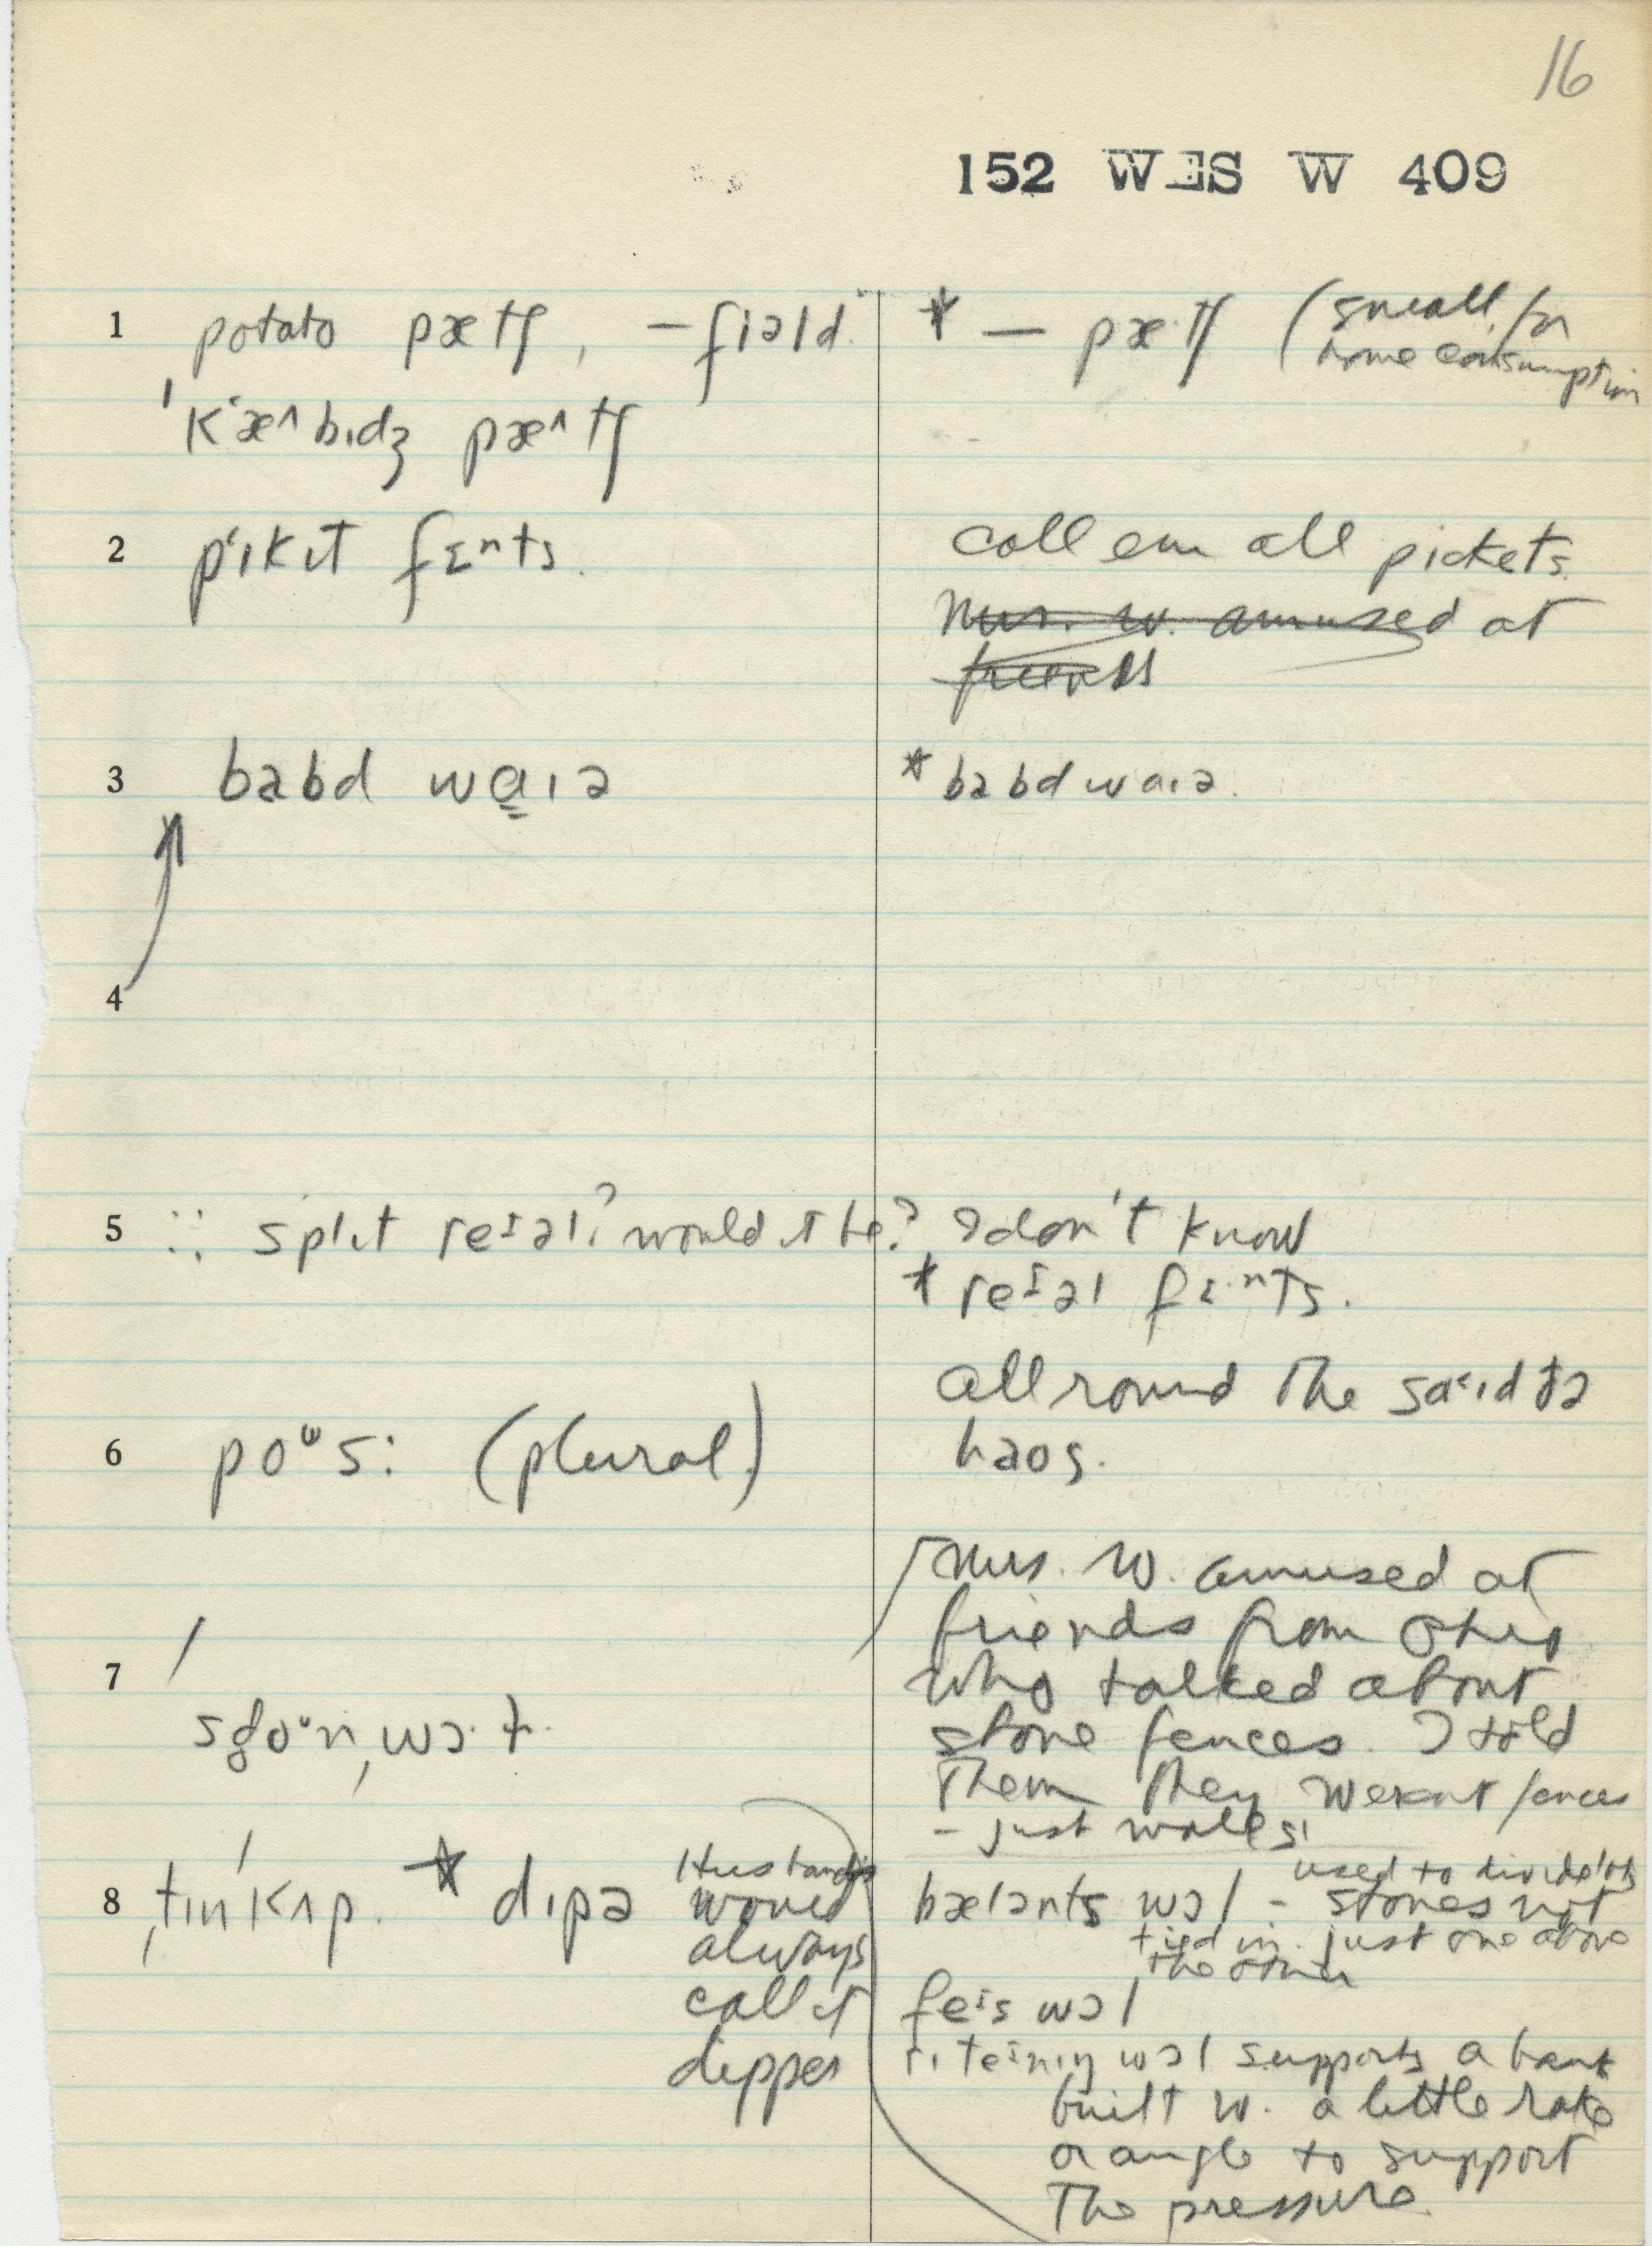 16
152 WES W 409
1 potato pætʃ, – fiəld.
ˈkʻæ^bɪdʒ pæ^tʃ
* — pæ·tʃ (small, for
home consumption
2 pʻɪkɪt fɛⁿts.
call em all pickets.
Mrs. W. amused at
3 babd waɪə
* babd waɪə.
4
5 :: split reɪəl? would it be? I don't know
* reɪəl fɛ·ⁿts.
all round the saˑɪd də
haos.
6 poᵘs: (plural)
Mrs. W. amused at
friends from Ohio
who talked about
stone fences. I told
them they weren't fences
– just walls!
7
8 ˌtɪnˈkʌp. * dɪpə
Husband
would
always
call it
dipper
bælənts wɔl – used to divide lots
stones not
tied in. just one above
the other
feɪs wɔl
rɪteɪnɪŋ wɔl supports a bank
built w. a little rake
or angle to support
the pressure.